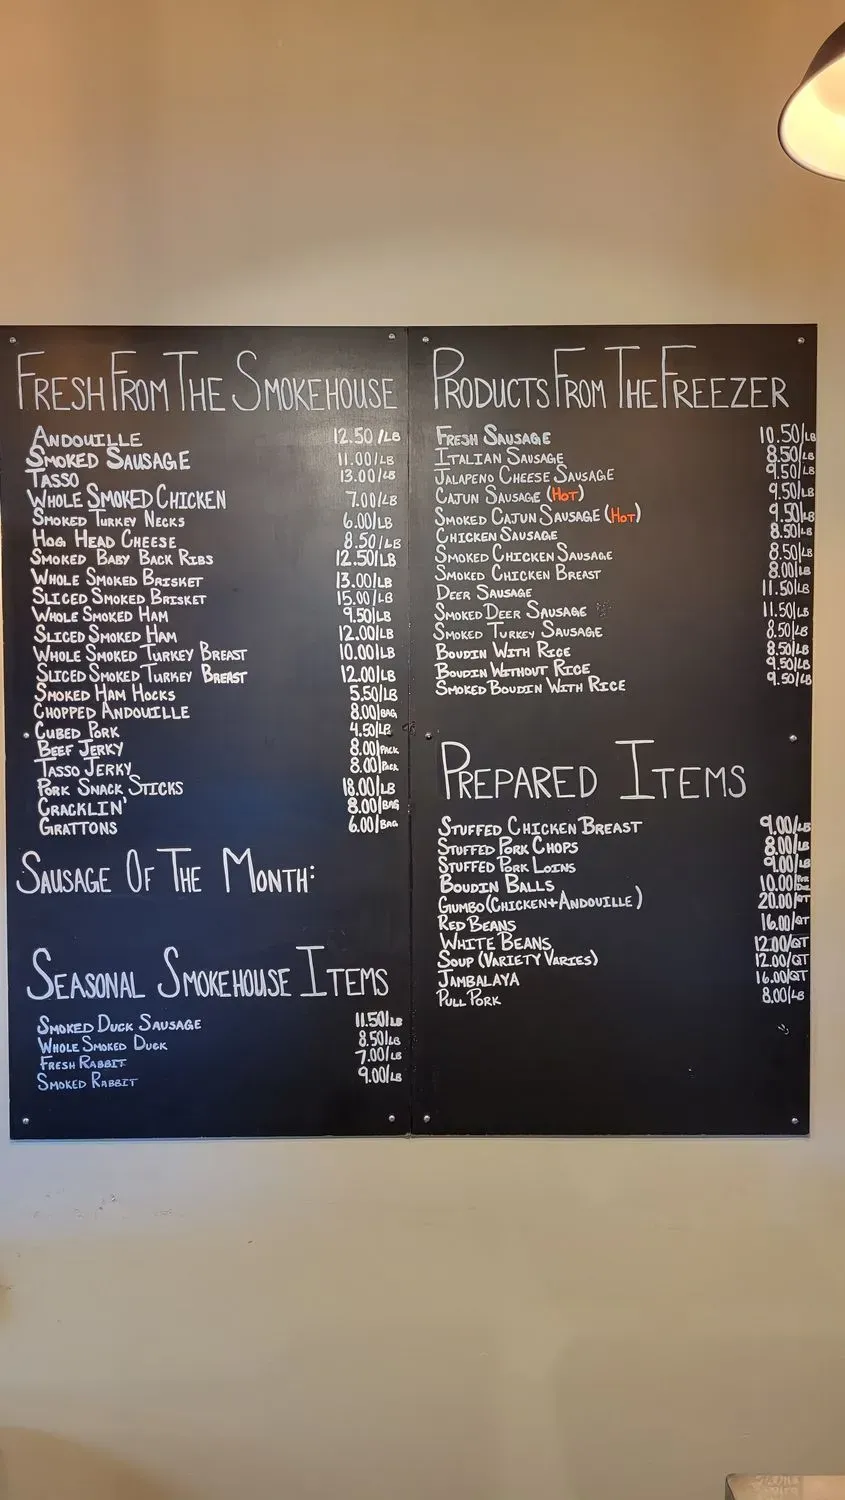 FRESH FROM THE SMOKEHOUSE
ANDOUILLE 12.50/LB
SMOKED SAUSAGE 11.00/LB
TASSO 13.00/LB
WHOLE SMOKED CHICKEN 7.00/LB
SMOKED TURKEY NECKS 6.00/LB
HOG HEAD CHEESE 8.50/LB
SMOKED BABY BACK RIBS 12.50/LB
WHOLE SMOKED BRISKET 13.00/LB
SLICED SMOKED BRISKET 15.00/LB
WHOLE SMOKED HAM 9.50/LB
SLICED SMOKED HAM 12.00/LB
WHOLE SMOKED TURKEY BREAST 10.00/LB
SLICED SMOKED TURKEY BREAST 12.00/LB
SMOKED HAM HOCKS 5.50/LB
CHOPPED ANDOUILLE 8.00/BAG
CUBED PORK 4.50/LB
BEEF JERKY 8.00/PACK
TASSO JERKY 8.00/PACK
PORK SNACK STICKS 18.00/LB
CRACKLIN' 8.00/BAG
GRATTONS 6.00/BAG
SAUSAGE OF THE MONTH:
SEASONAL SMOKEHOUSE ITEMS
SMOKED DUCK SAUSAGE 11.50/LB
WHOLE SMOKED DUCK 8.50/LB
FRESH RABBIT 7.00/LB
SMOKED RABBIT 9.00/LB
PRODUCTS FROM THE FREEZER
FRESH SAUSAGE 10.50/LB
ITALIAN SAUSAGE 8.50/LB
JALAPENO CHEESE SAUSAGE 9.50/LB
CAJUN SAUSAGE (HOT) 9.50/LB
SMOKED CAJUN SAUSAGE (HOT) 9.50/LB
CHICKEN SAUSAGE 8.50/LB
SMOKED CHICKEN SAUSAGE 8.50/LB
SMOKED CHICKEN BREAST 8.00/LB
DEER SAUSAGE 11.50/LB
SMOKED DEER SAUSAGE 11.50/LB
SMOKED TURKEY SAUSAGE 8.50/LB
BOUDIN WITH RICE 8.50/LB
BOUDIN WITHOUT RICE 9.50/LB
SMOKED BOUDIN WITH RICE 9.50/LB
PREPARED ITEMS
STUFFED CHICKEN BREAST 9.00/LB
STUFFED PORK CHOPS 8.00/LB
STUFFED PORK LOINS 9.00/LB
BOUDIN BALLS 10.00
GUMBO (CHICKEN + ANDOUILLE) 20.00/QT
RED BEANS 16.00/QT
WHITE BEANS 12.00/QT
SOUP (VARIETY VARIES) 12.00/QT
JAMBALAYA 16.00/QT
PULL PORK 8.00/LB